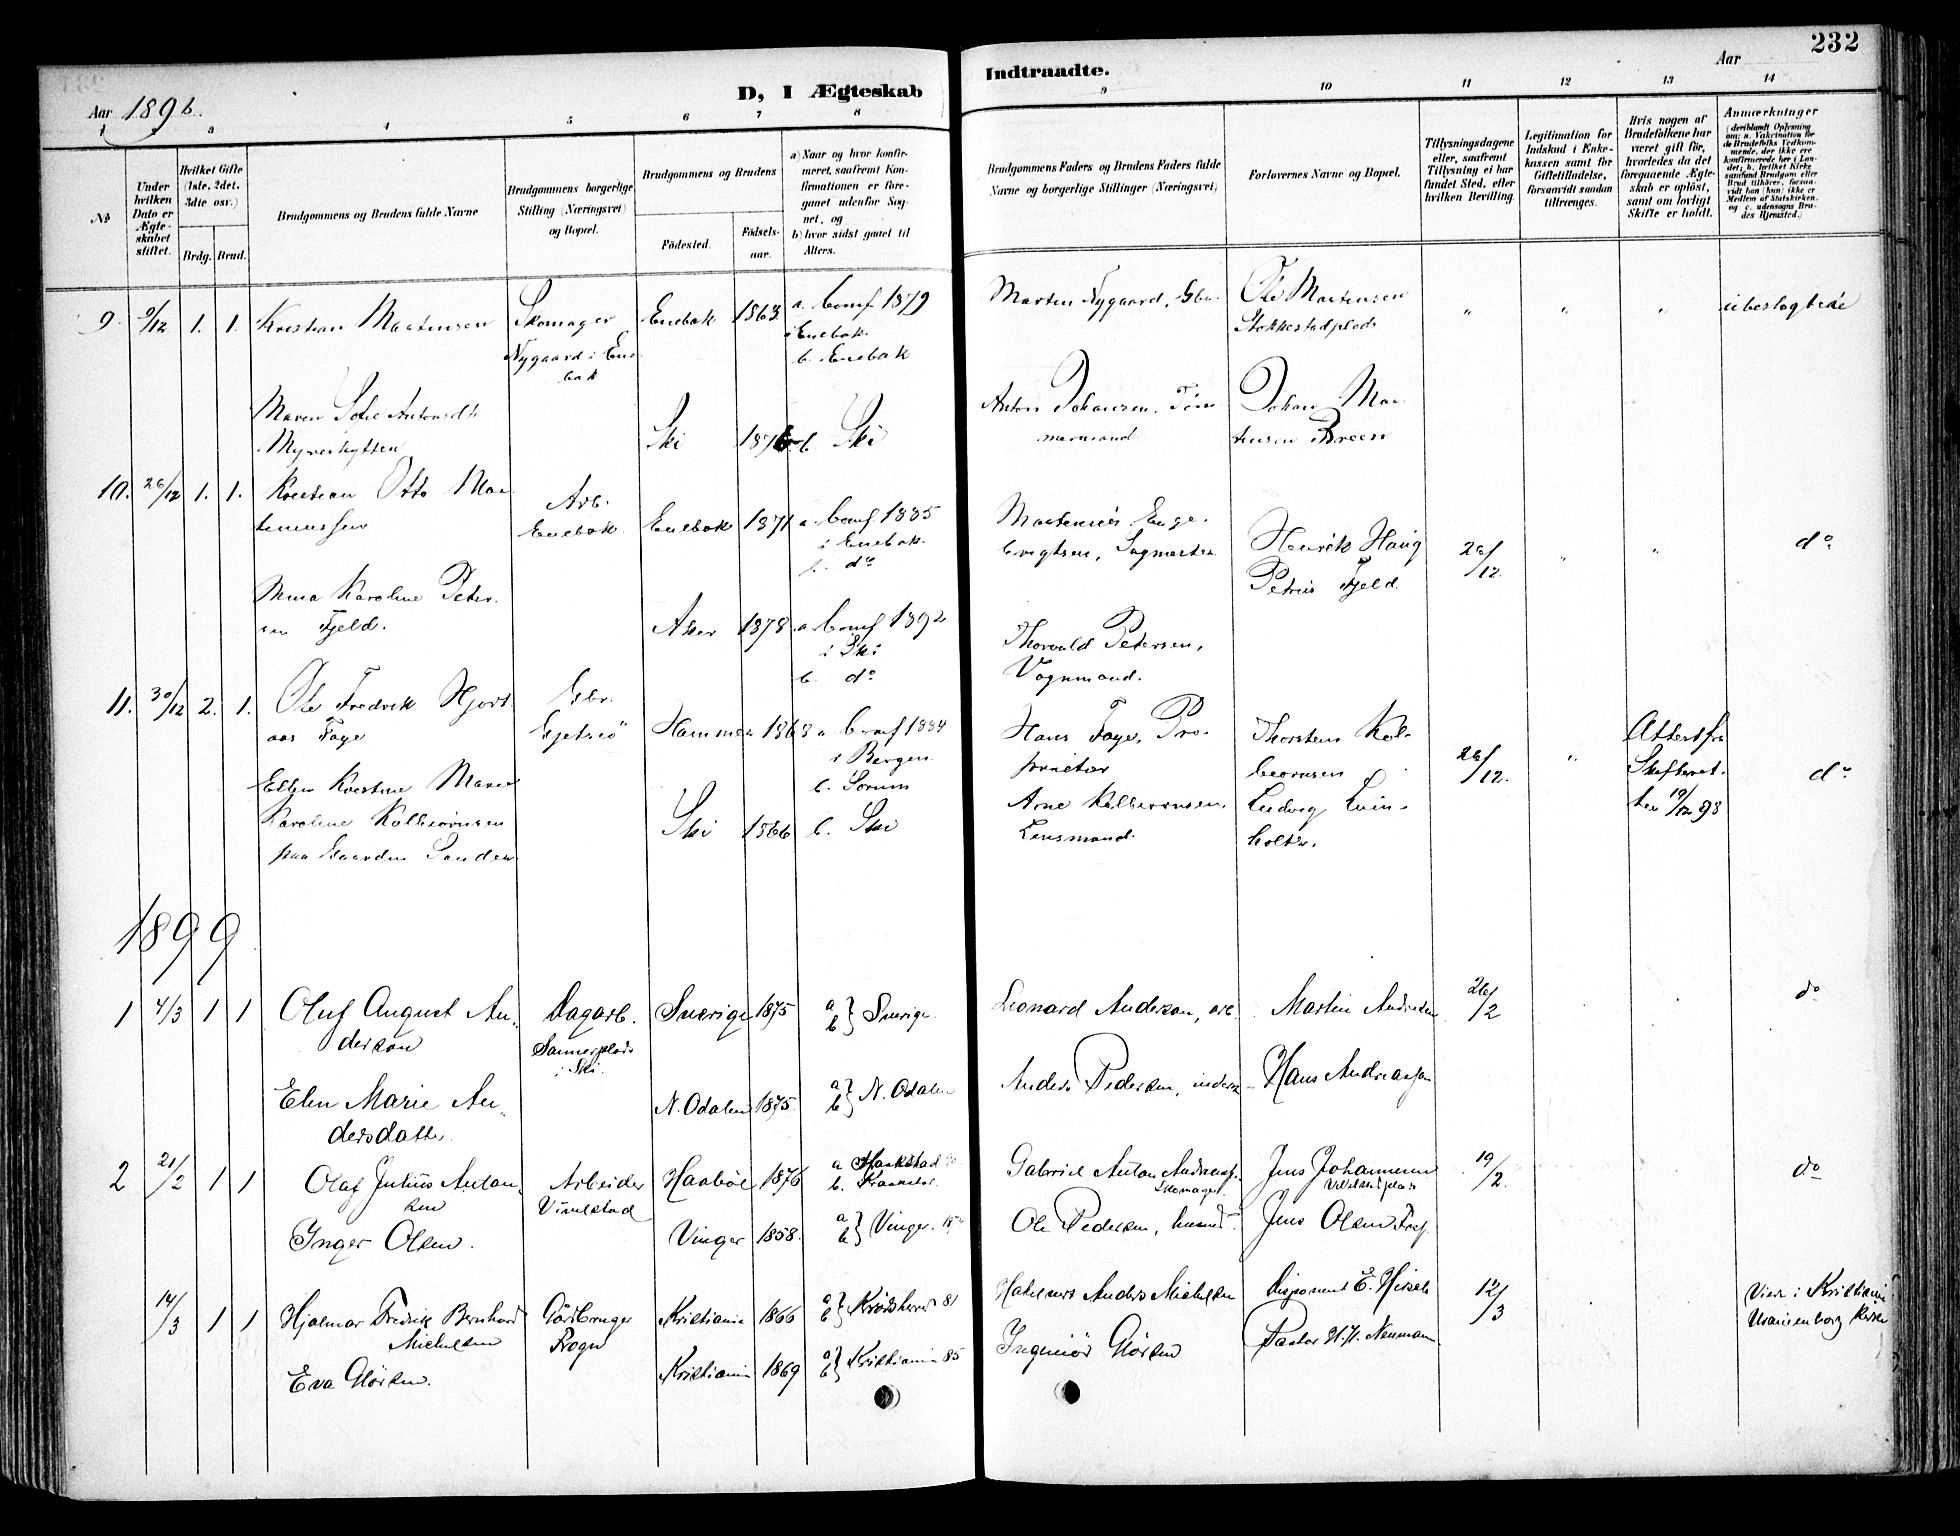 232
D, I Ægteskab
Indtraadte.
Aar 1898.
Aar
1
3
4
5
6
7
8
9
10
11
12
13
14
No
Under hvilken Dato er Ægteskabet stiftet.
Hvilket Gifte (1ste, 2det, 3dte osv.)
Brdg.
Brud.
Brudgommens og Brudens fulde Navne
Brudgommens borgerlige Stilling (Næringsvei) og Bopæl.
Brudgommens og Brudens
Fødested.
Fødselsaar.
a) Naar og hvor konfirmeret, saafremt Konfirmationen er foregaaet udenfor Sognet, og
b) hvor sidst gaaet til Alters.
Brudgommens Faders og Brudens Faders fulde Navne og borgerlige Stillinger (Næringsvei)
Forlovernes Navne og Bopæl.
Tillysningsdagene eller, saafremt Tillysning ei har fundet Sted, efter hvilken Bevilling.
Legitimation for Indskud i Enkekassen samt for Giftetilladelse, forsaavidt saadan tiltrænges.
Hvis nogen af Brudefolkene har været gift før, hvorledes da det foregaaende Ægteskab er opløst, samt om lovligt Skifte er holdt.
Anmærkninger
9. 9/12 1. 1.
Kristian Martensen
Skomager
Nygaard i Enebak
Enebak
1863
a. Conf 1879
i Enebak
b. Enebak
Marten Nygaard, Gbr.
Ole Martensen
Stokkestadplads
ubeslegtede
Maren Sofie Antonsdtr
Myrerhytten
Ski
1876
b. Ski
Anton Johansen, Tøm
mermand.
Johan Mar
tinsen Breen
10. 26/12 1. 1.
Kristian Otto Mar
tinussen
Arb.
Enebak
Enebak
1871
a. Conf 1885
i Enebak
b. do
Martinius Enge
bregtsen, Sagmester
Henrik Haug
Petrus Fjeld.
26/12.
do
Mina Karoline Peter
sen Fjeld.
Asker
1878
a. Conf 1892
i Ski
b. do
Thorvald Petersen,
Vognmand.
11. 30/12 2. 1.
Ole Fredrik Hjort
aas Faye
Gbr.
Gjetsiø
Hammer
1868
a. Conf 1884
i Bergen
b. Sørum
Hans Faye, Pro
prietær
Thorsten Kol
beornsen
26/12.
Attest fra
Skifteret.
do
Ellen Kristine Marie
Karoline Kolbeornsen
paa Gaarden Sander
Ski
1866
b. Ski
Arne Kolbeornsen,
Lensmand.
Ludvig Lein
holter.
1899
1 4/3 1 1
Oluf August An
dersson
Dagarb.
Sannerplads
i Ski.
Sverige
1875
a
b } Sverige.
Leonard Anderson, arb.
Martin Andresen
26/2
do
Elen Marie An
dersdatter
N. Odalen
1875.
a
b } N. Odalen
Anders Pedersen, inderst
Hans Andreassen
2 21/2 1 1
Olaf Julius Anton
sen
Arbeider
Vivelstad
Haabøl
1876
a. Haakstad 90
b. Kraakstad.
Gabriel Anton Andreass.
Skomager.
Jens Johannesen
Vivelstadplads
19/2.
do
Inger Olsen.
Vinger
1858.
a
b } Vinger.
Ole Pedersen, husmd.
Jens Olsen
14/3 1 1
Hjalmar Fredrik Bernhard
Michelsen
Gårdbruger
Frogn
Kristiania
1866
a
b } Krødsherred 81
Anders Michelsen
Disponent E. Hirsch
12/3
Viet i Kristiania
Uranienborg Kirke
Eva Glørsen.
Kristiania
1869
a
b } Kristiania 85
Ingeniør Glørsen
Pastor H. H. Neumann